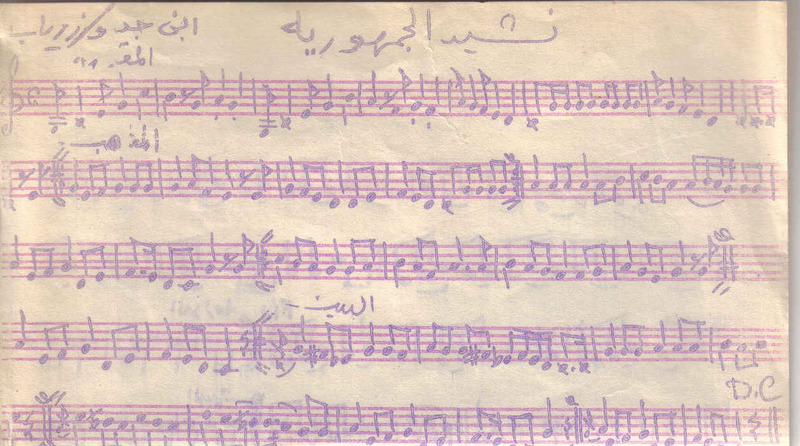 نشيد الجمهورية
ابن جدو/زرياب
المقدمة
المذهب
البيت
D.C